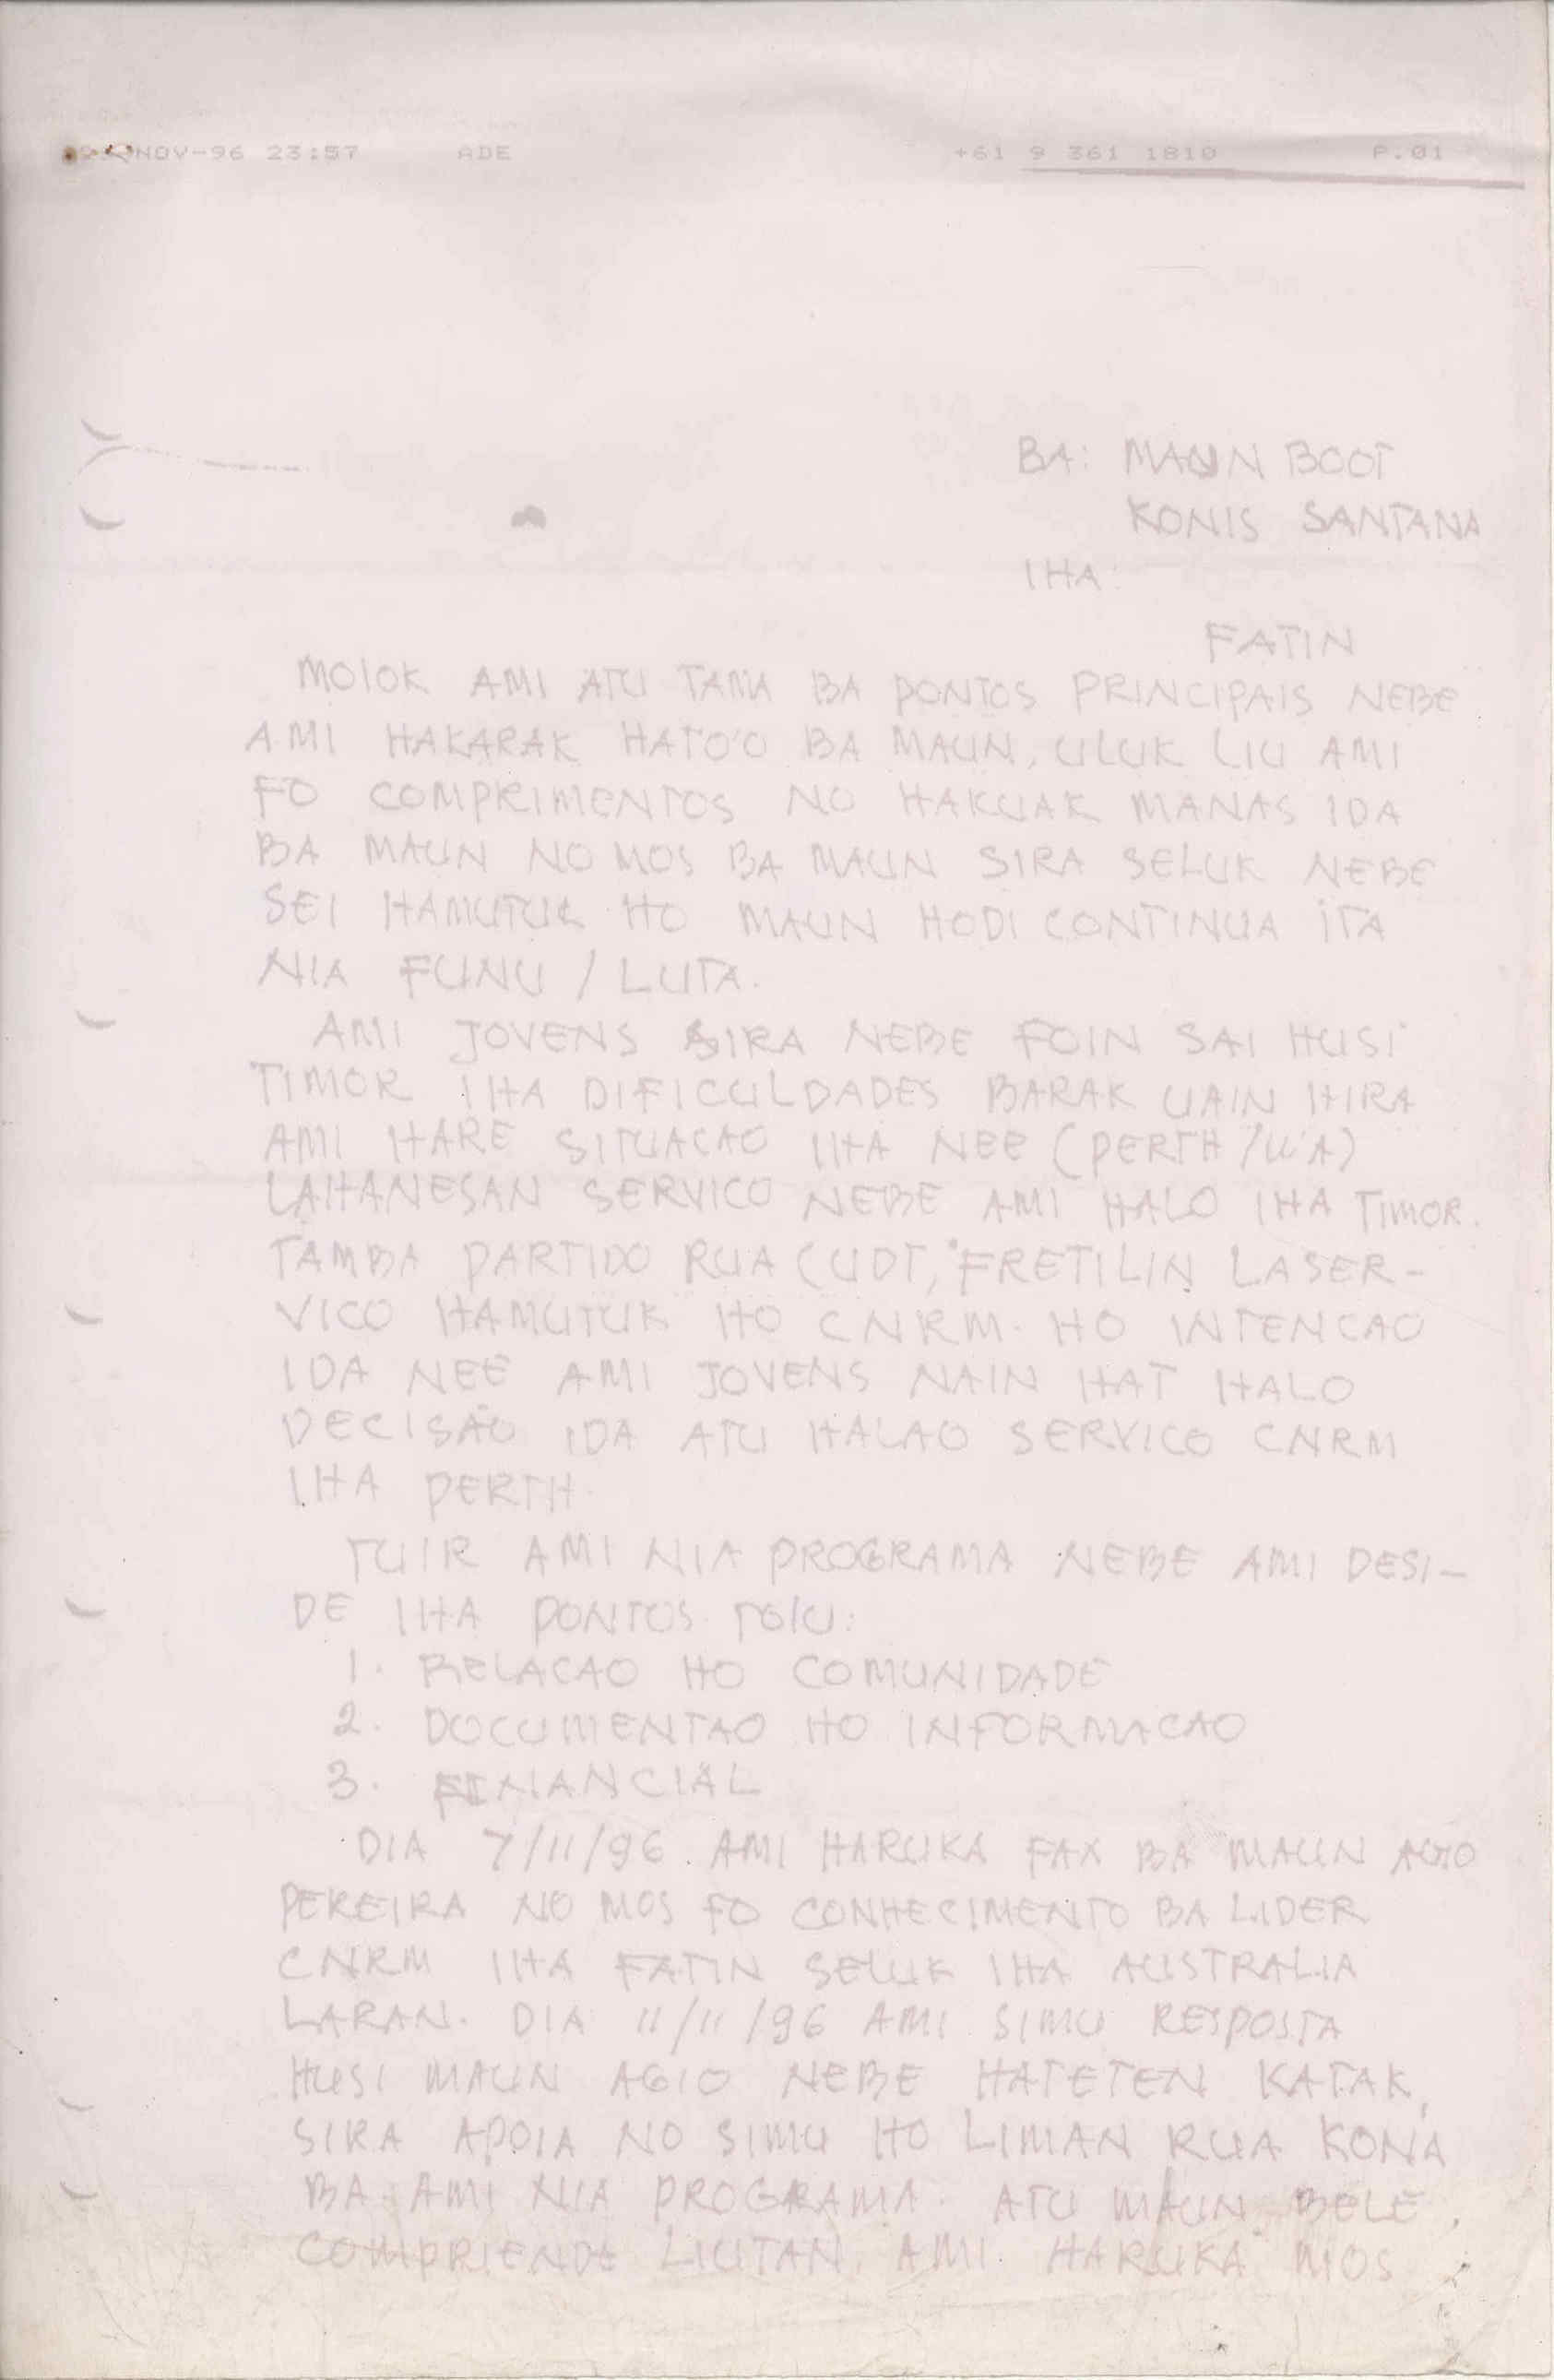 NOV-96 23:57 ADE +61 9 361 1810 P.01
BA: MAUN BOOT
KONIS SANTANA
IHA:
FATIN
MOLOK AMI ATU TAMA BA PONTOS PRINCIPAIS NEBE
AMI HAKARAK HATO'O BA MAUN, ULUK LIU AMI
FO COMPRIMENTOS NO HAKUAK MANAS IDA
BA MAUN NO MOS BA MAUN SIRA SELUK NEBE
SEI HAMUTUK HO MAUN HODI CONTINUA ITA
NIA FUNU / LUTA.
AMI JOVENS SIRA NEBE FOIN SAI HUSI
TIMOR IHA DIFICULDADES BARAK UAIN HIRA
AMI HARE SITUACAO IHA NEE (PERTH/WA)
LAHANESAN SERVICO NEBE AMI HALO IHA TIMOR.
TAMBA PARTIDO RUA (UDT, FRETILIN LASER-
VICO HAMUTUK HO CNRM. HO INTENCAO
IDA NEE AMI JOVENS NAIN HAT HALO
DECISÃO IDA ATU HALAO SERVICO CNRM
IHA PERTH.
TUIR AMI NIA PROGRAMA NEBE AMI DESI-
DE IHA PONTOS TOLU:
1. RELACAO HO COMUNIDADE
2. DOCUMENTAO HO INFORMACAO
3. FINANCIAL
DIA 7/11/96. AMI HARUKA FAX BA MAUN AGIO
PEREIRA NO MOS FO CONHECIMENTO BA LIDER
CNRM IHA FATIN SELUK IHA AUSTRALIA
LARAN. DIA 11/11/96 AMI SIMU RESPOSTA
HUSI MAUN AGIO NEBE HATETEN KATAK,
SIRA APOIA NO SIMU HO LIMAN RUA KONA
BA AMI NIA PROGRAMA. ATU MAUN BELE
COMPRIENDE LIUTAN, AMI HARUKA MOS